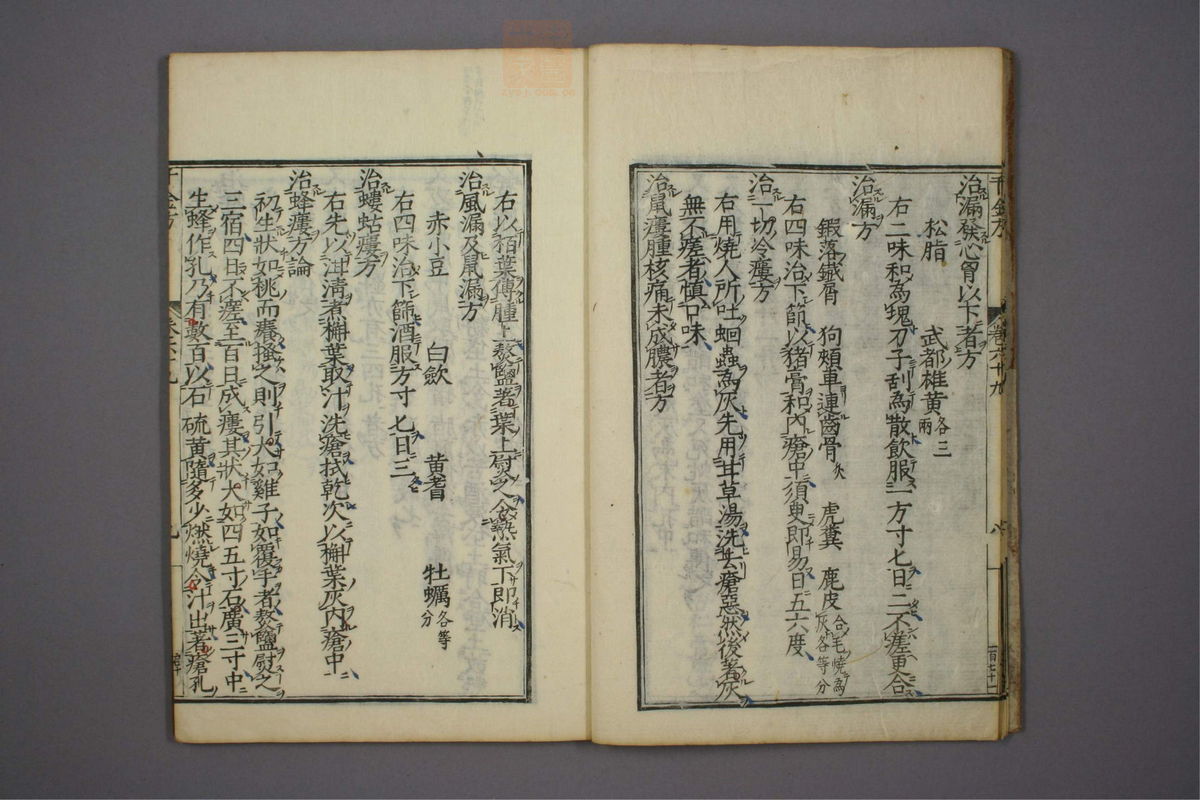 千金方
卷六十九
八
百七十一
治漏發心胷以下者方
松脂 武都雄黄各三兩
右二味和為塊刀子刮為散飲服一方寸匕日二不瘥更合
治漏方
鍜落鐵屑 狗頰車連齒骨炙 虎糞 鹿皮合毛燒為灰各等分
右四味治下篩以猪膏和內瘡中須臾即易日五六度
治一切冷瘻方
右用燒人所吐蛔蟲為灰先用甘草湯洗去瘡惡然後著灰
無不瘥者慎口味
治鼠瘻腫核痛未成膿者方
右以栢葉傅腫上熬鹽著葉上熨之令熱氣下即消
治風漏及鼠漏方
赤小豆 白歛 黄耆 牡蠣各等分
右四味治下篩酒服方寸匕日三
治螻蛄瘻方
右先以泔清煮槲葉取汁洗瘡拭乾次以槲葉灰內瘡中
治蜂瘻方論
初生狀如桃而癢搔之則引大如雞子如覆手者熬鹽熨之
三宿四日不瘥至百日成瘻其狀大如四五寸石廣三寸中
生蜂作孔乃有數百以石硫黄隨多少燃燒令汁出著瘡孔
千金方
卷六十九
九